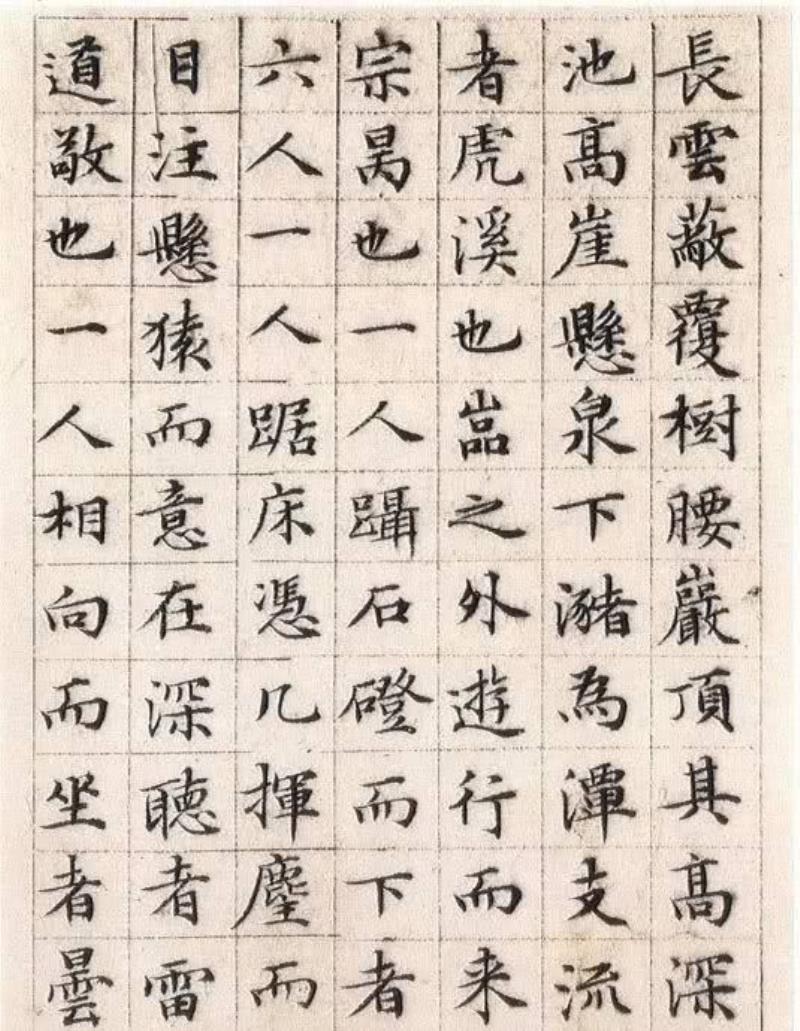 長雲蔽覆樹腰巖頂其髙深
池髙崖懸泉下瀦為潭支流
者虎溪也嵓之外遊行而来
宗昺也一人躡石磴而下者
六人一人踞床憑几揮麈而
目注懸猿而意在深聽者雷
道敬也一人相向而坐者曇